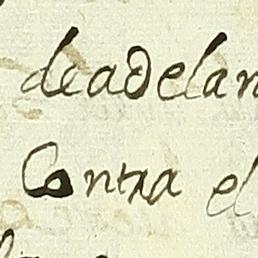 deadelan
Contra el